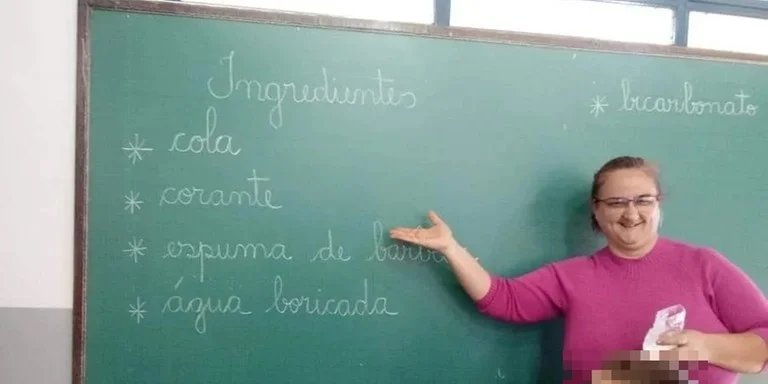 Ingredientes
* cola
* corante
* espuma de
* água boricada
* bicarbonato